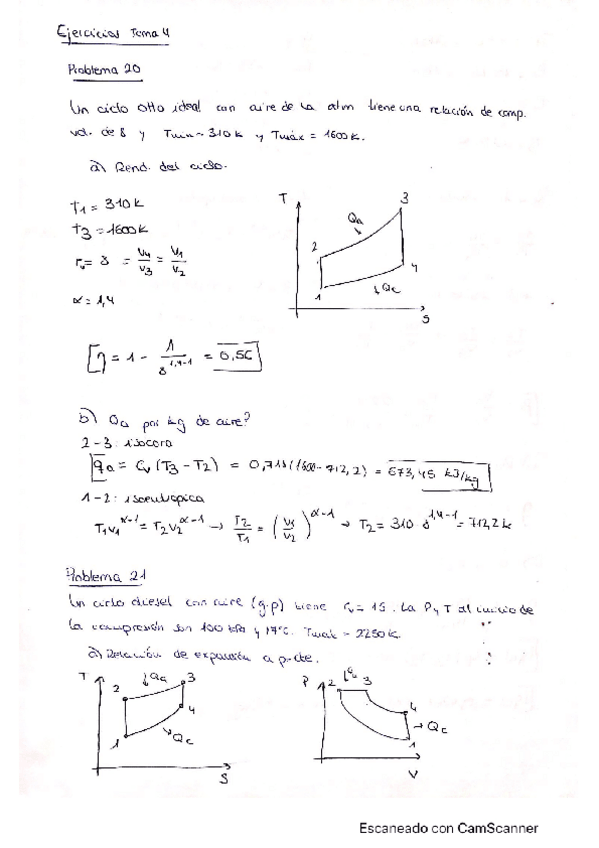 Ejercicios Tema 4
Problema 20
Un ciclo Otto ideal con aire de la atm tiene una relación de comp.
vol. de 8 y Tmin = 310 k y Tmáx = 1600k.
a) Rend. del ciclo.
T1 = 310k
T3 = 1600k
rv = 8 = V4/V3 = V1/V2
α = 1,4
T
3
Qa
2
4
1
Qc
S
η = 1 - 1/8^1,4-1 = 0,56
b) Qa por kg de aire?
2-3: isocora
qa = Cv (T3 - T2) = 0,718(1600-712,2) = 673,45 kJ/kg
1-2: isentropica
T1V1^α-1 = T2V2^α-1 → T2/T1 = (V1/V2)^α-1 → T2 = 310 · 8^1,4-1 = 712,2 k
Problema 21
Un ciclo diesel con aire (g.p) tiene rv = 15. La P y T al inicio de
la compresión son 100 kPa y 17°C. Tmax = 2250k.
a) Relación de expansión a p cte.
T
Qa
3
2
4
1
Qc
S
P
2
Qa
3
4
Qc
1
V
Escaneado con CamScanner